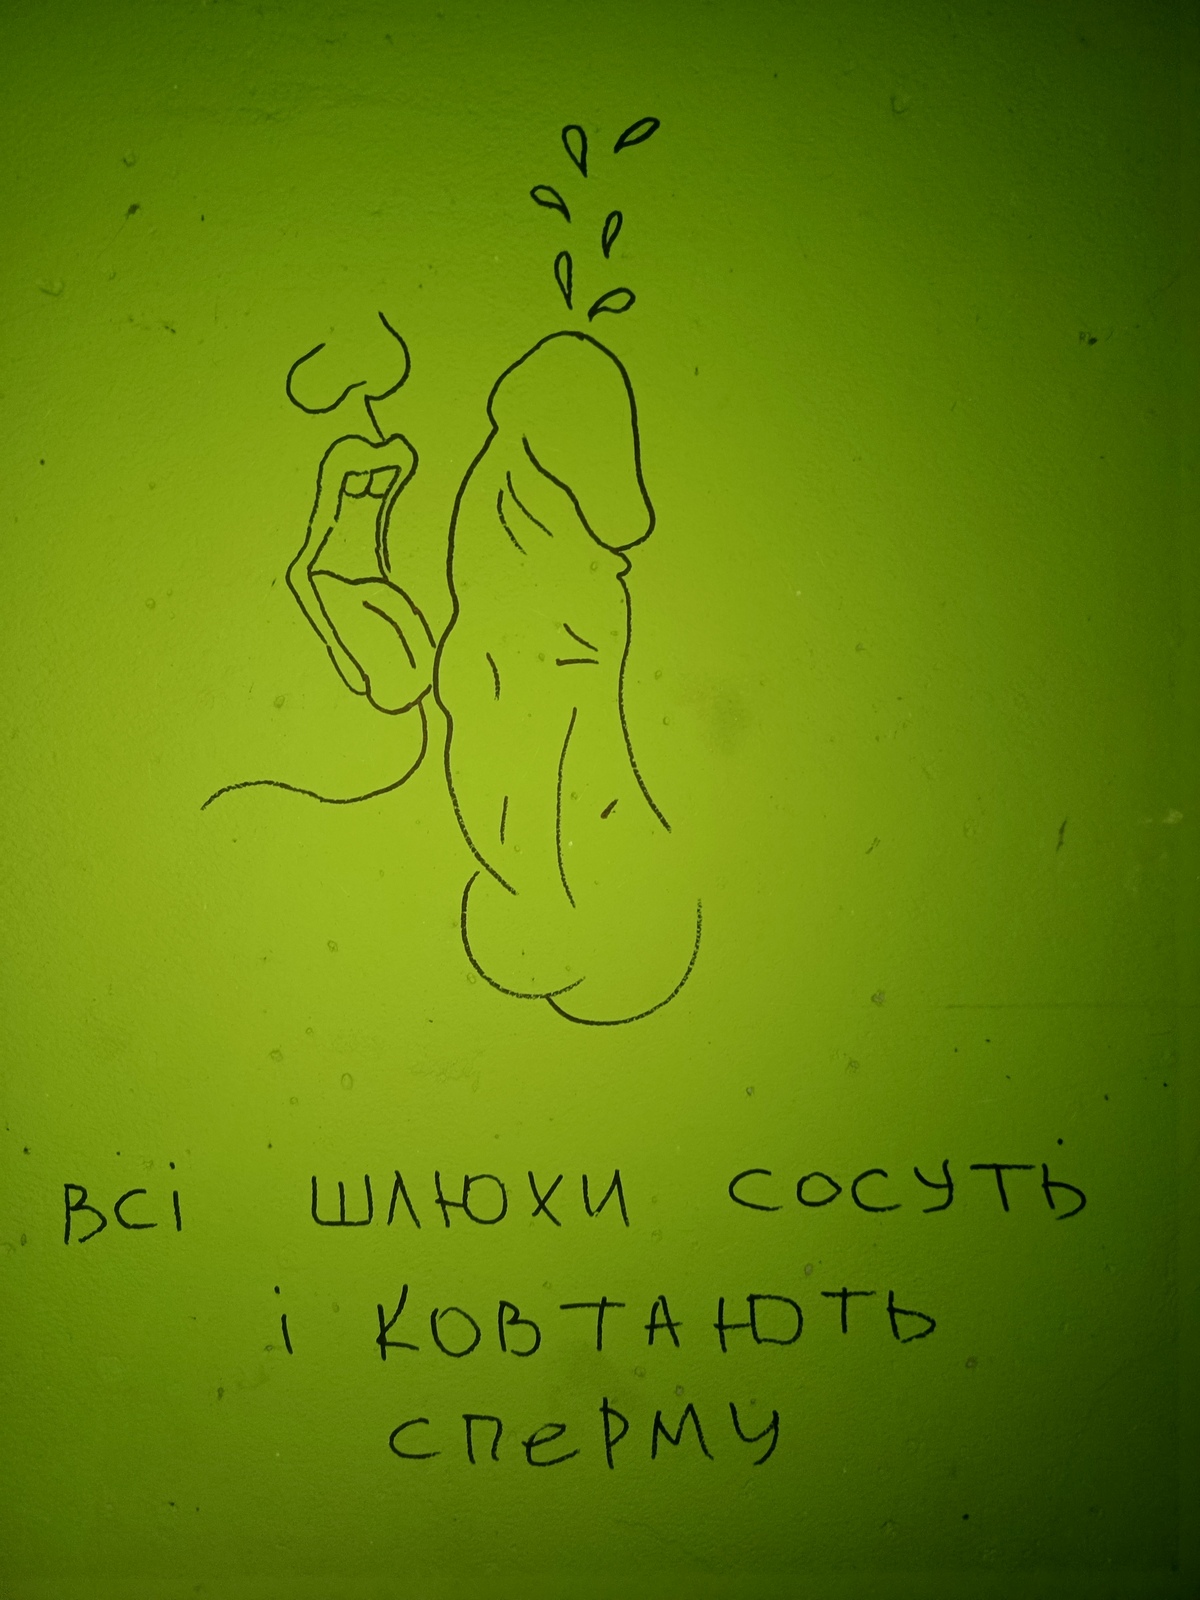 Всі шлюхи сосуть
і ковтають
сперму